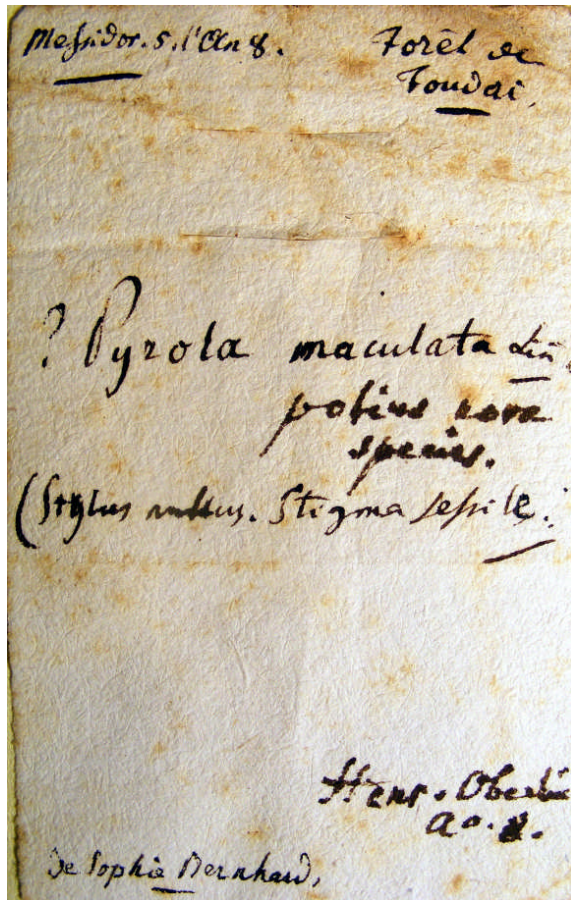 Messidor. 5. l'An 8.
Forêt de
Foudai.
? Pyrola maculata Lin.
potius nova
species.
(Stylus nullus. Stigma sessile.
Henr. Oberlin
a°. 8.
De Sophie Bernhard,